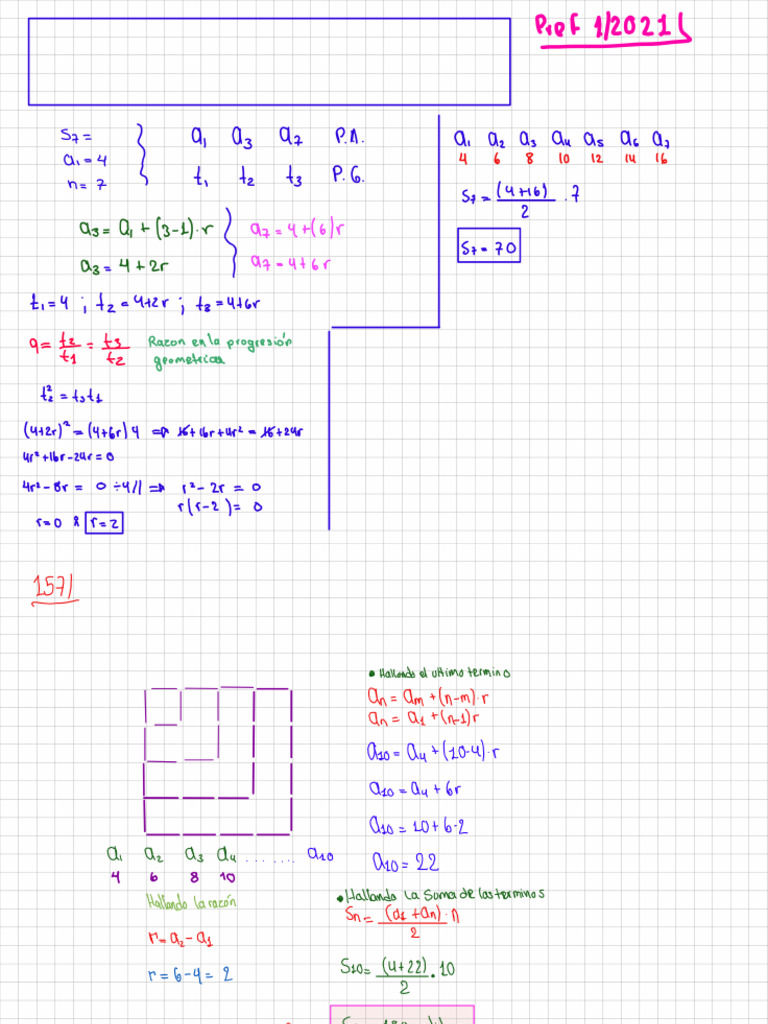 Pref 1/2021
S₇ =
a₁ = 4
n = 7
a₁ a₃ a₇ P.A.
t₁ t₂ t₃ P.G.
a₃ = a₁ + (3-1)·r
a₃ = 4 + 2r
a₇ = 4 + (6)r
a₇ = 4 + 6r
t₁ = 4 ; t₂ = 4+2r ; t₃ = 4+6r
q = t₂/t₁ = t₃/t₂ Razon en la progresión
geometricas
t₂² = t₃t₁
(4+2r)² = (4+6r) 4 ⇒ 16+16r+4r² = 16+24r
4r²+16r-24r = 0
4r²-8r = 0 ÷4// ⇒ r²-2r = 0
r(r-2) = 0
r=0 & r=2
a₁ a₂ a₃ a₄ a₅ a₆ a₇
4 6 8 10 12 14 16
S₇ = (4+16)/2 · 7
S₇ = 70
157/
a₁ a₂ a₃ a₄ ....... a₁₀
4 6 8 10
Hallando la razón
r = a₂ - a₁
r = 6-4 = 2
• Hallando el ultimo termino
aₙ = aₘ + (n-m)·r
aₙ = a₁ + (n-1)r
a₁₀ = a₄ + (10-4)·r
a₁₀ = a₄ + 6r
a₁₀ = 10+6·2
a₁₀ = 22
• Hallando La Suma de los terminos
Sₙ = (a₁ + aₙ)·n/2
S₁₀ = (4+22)/2 · 10